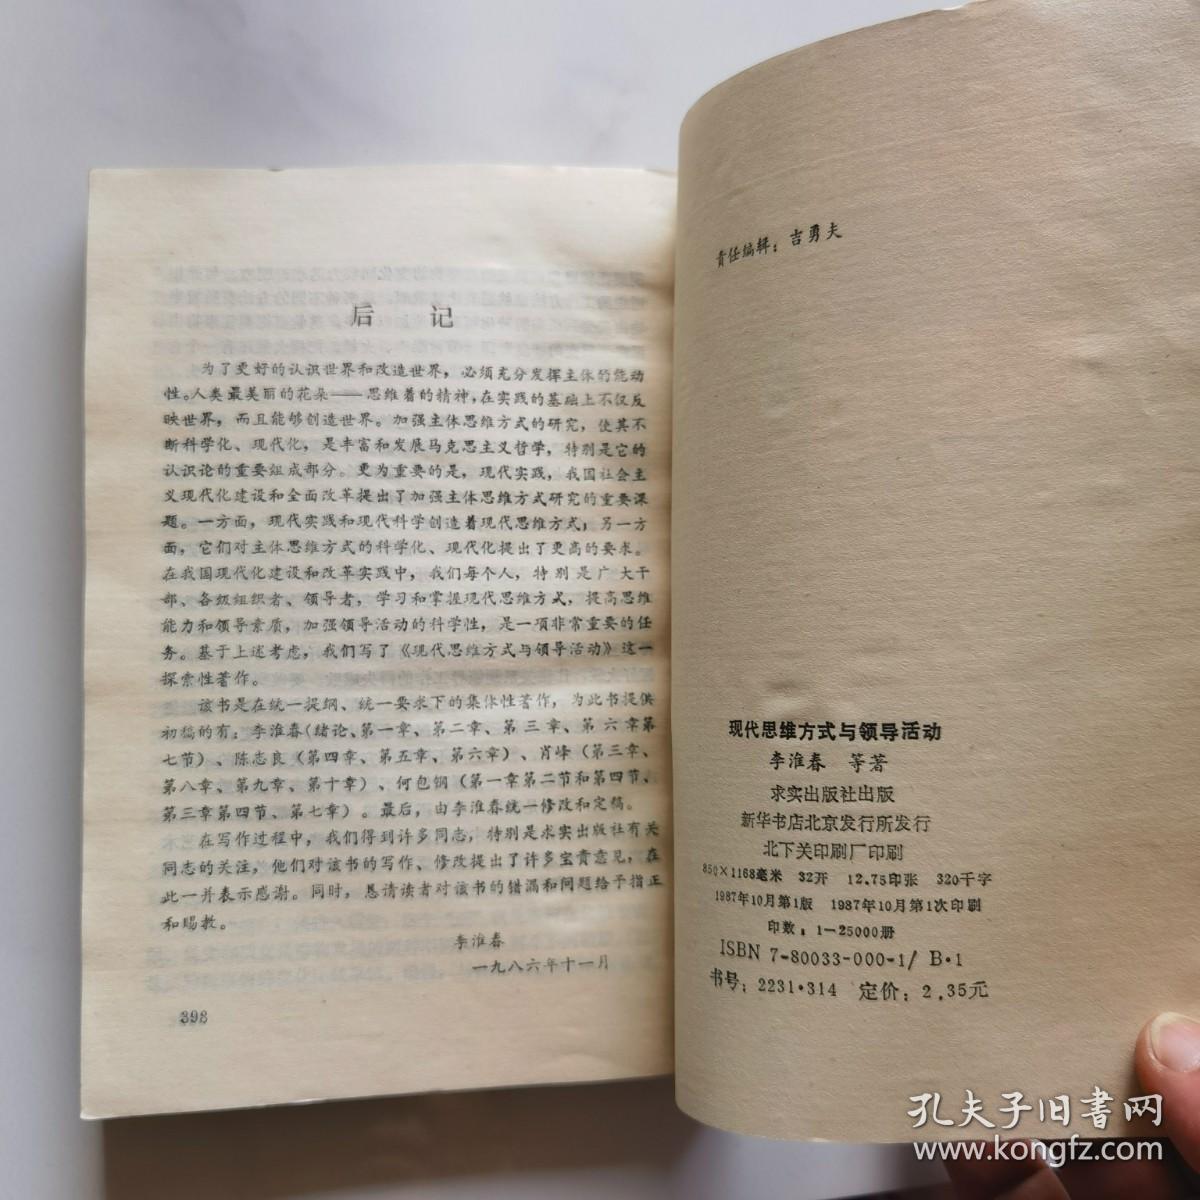 后 记
为了更好的认识世界和改造世界，必须充分发挥主体的能动
性。人类最美丽的花朵——思维着的精神，在实践的基础上不仅反
映世界，而且能够创造世界。加强主体思维方式的研究，使其不
断科学化、现代化，是丰富和发展马克思主义哲学，特别是它的
认识论的重要组成部分。更为重要的是，现代实践，我国社会主
义现代化建设和全面改革提出了加强主体思维方式研究的重要课
题。一方面，现代实践和现代科学创造着现代思维方式；另一方
面，它们对主体思维方式的科学化、现代化提出了更高的要求。
在我国现代化建设和改革实践中，我们每个人，特别是广大干
部、各级组织者、领导者，学习和掌握现代思维方式，提高思维
能力和领导素质，加强领导活动的科学性，是一项非常重要的任
务。基于上述考虑，我们写了《现代思维方式与领导活动》这一
探索性著作。
该书是在统一提纲、统一要求下的集体性著作，为此书提供
初稿的有：李淮春（绪论、第一章、第二章、第三章、第六章第
七节）、陈志良（第四章、第五章、第六章）、肖峰（第三章、
第八章、第九章、第十章）、何包钢（第一章第二节和第四节、
第三章第四节、第七章）。最后，由李淮春统一修改和定稿。
在写作过程中，我们得到许多同志，特别是求实出版社有关
同志的关注，他们对该书的写作、修改提出了许多宝贵意见，在
此一并表示感谢。同时，恳请读者对该书的错漏和问题给予指正
和赐教。
李淮春
一九八六年十一月
398
责任编辑：吉勇夫
现代思维方式与领导活动
李淮春 等著
求实出版社出版
新华书店北京发行所发行
北下关印刷厂印刷
850×1168毫米 32开 12.75印张 320千字
1987年10月第1版 1987年10月第1次印刷
印数：1—25000册
ISBN 7-80033-000-1/ B·1
书号：2231·314 定价：2.35元
孔夫子旧书网
www.kongfz.com